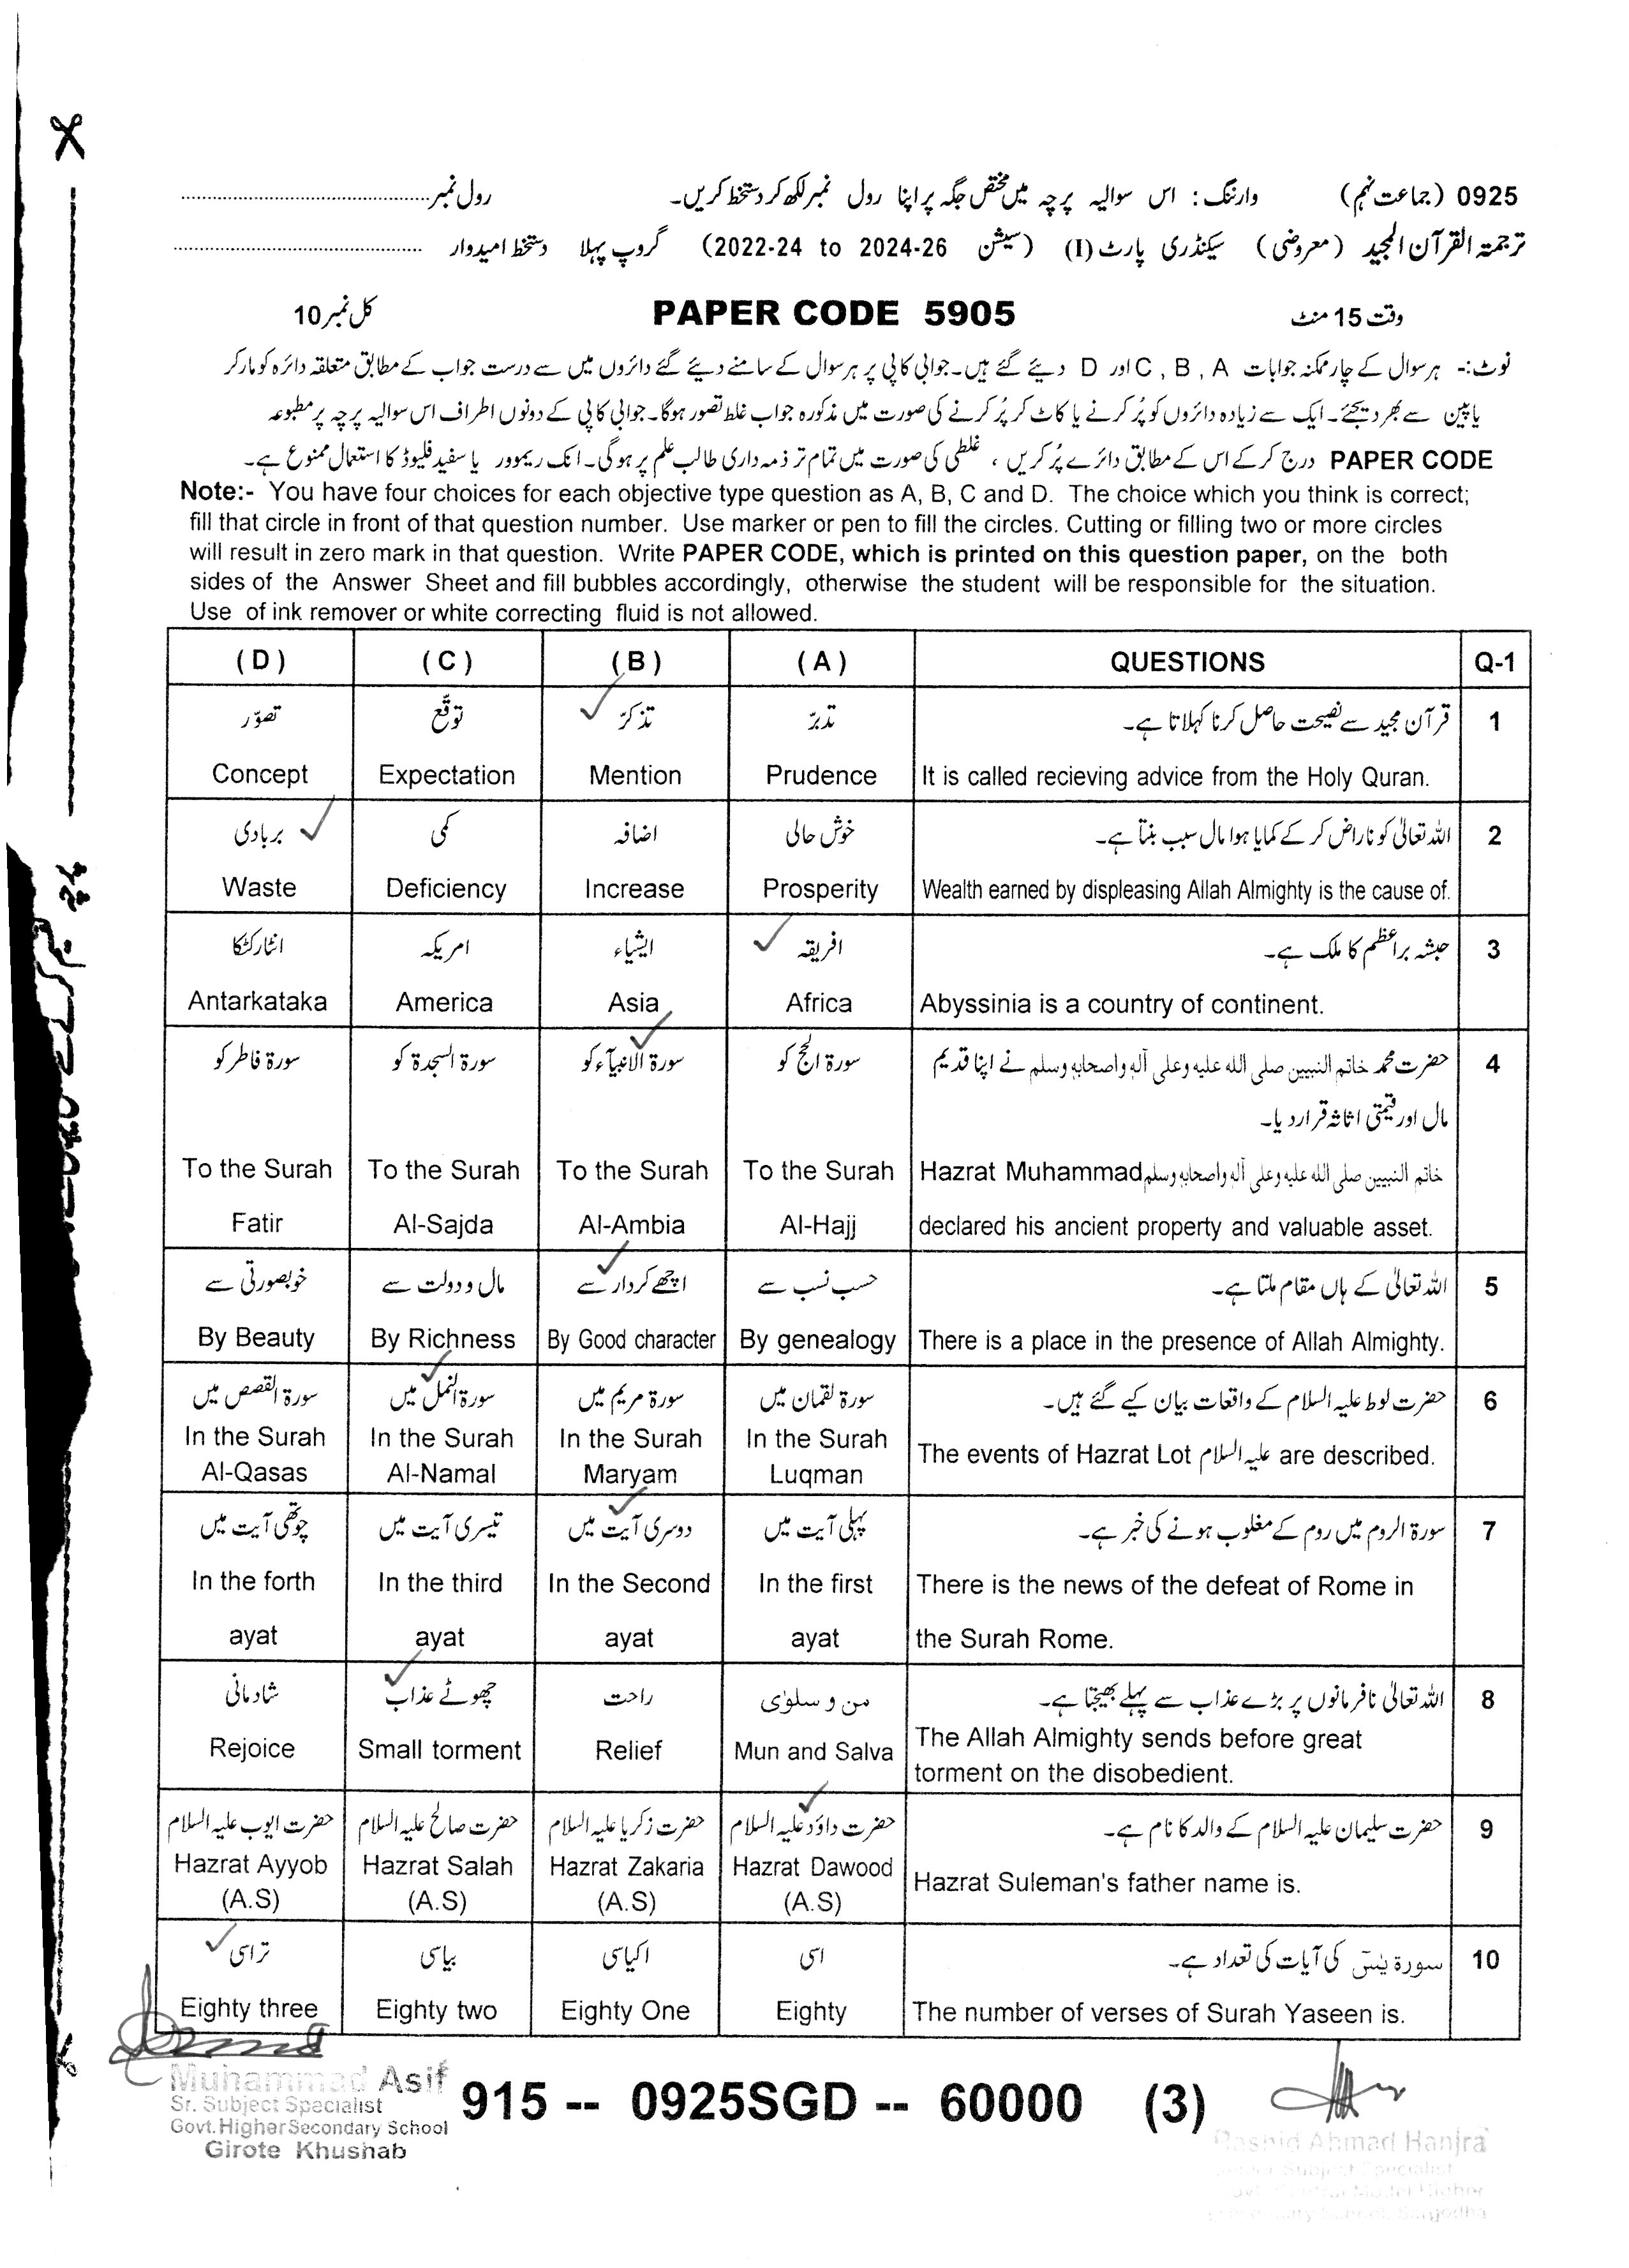 0925 (جماعت نہم) وارننگ: اس سوالیہ پرچہ میں مختص جگہ پر اپنا رول نمبر لکھ کر دستخط کریں۔ رول نمبر
ترجمۃ القرآن المجید (معروضی) سیکنڈری پارٹ (I) (سیشن 2022-24 to 2024-26) گروپ پہلا دستخط امیدوار
وقت 15 منٹ PAPER CODE 5905 کل نمبر 10
نوٹ:- ہر سوال کے چار ممکنہ جوابات A , B , C اور D دیئے گئے ہیں۔ جوابی کاپی پر ہر سوال کے سامنے دیئے گئے دائروں میں سے درست جواب کے مطابق متعلقہ دائرہ کو مارکر
یا پین سے بھر دیجئے۔ ایک سے زیادہ دائروں کو پُر کرنے یا کاٹ کر پُر کرنے کی صورت میں مذکورہ جواب غلط تصور ہوگا۔ جوابی کاپی کے دونوں اطراف اس سوالیہ پرچہ پر مطبوعہ
PAPER CODE درج کر کے اس کے مطابق دائرے پُر کریں ، غلطی کی صورت میں تمام تر ذمہ داری طالب علم پر ہوگی۔ انک ریموور یا سفید فلیوڈ کا استعمال ممنوع ہے۔
Note:- You have four choices for each objective type question as A, B, C and D. The choice which you think is correct;
fill that circle in front of that question number. Use marker or pen to fill the circles. Cutting or filling two or more circles
will result in zero mark in that question. Write PAPER CODE, which is printed on this question paper, on the both
sides of the Answer Sheet and fill bubbles accordingly, otherwise the student will be responsible for the situation.
Use of ink remover or white correcting fluid is not allowed.
(D) (C) (B) (A) QUESTIONS Q-1
1 قرآن مجید سے نصیحت حاصل کرنا کہلاتا ہے۔ تدبّر تذکّر توقّع تصوّر
Concept Expectation Mention Prudence It is called recieving advice from the Holy Quran.
2 اللہ تعالیٰ کو ناراض کر کے کمایا ہوا مال سبب بنتا ہے۔ خوش حالی اضافہ کمی بربادی
Waste Deficiency Increase Prosperity Wealth earned by displeasing Allah Almighty is the cause of.
3 حبشہ براعظم کا ملک ہے۔ افریقہ ایشیاء امریکہ انٹارکٹکا
Antarkataka America Asia Africa Abyssinia is a country of continent.
4 حضرت محمد خاتم النبیین صلی اللہ علیہ وعلی آلہ واصحابہ وسلم نے اپنا قدیم سورۃ الحج کو سورۃ الانبیآء کو سورۃ السجدۃ کو سورۃ فاطر کو
مال اور قیمتی اثاثہ قرار دیا۔
To the Surah To the Surah To the Surah To the Surah Hazrat Muhammad خاتم النبیین صلی اللہ علیہ وعلی آلہ واصحابہ وسلم
Fatir Al-Sajda Al-Ambia Al-Hajj declared his ancient property and valuable asset.
5 اللہ تعالیٰ کے ہاں مقام ملتا ہے۔ حسب نسب سے اچھے کردار سے مال و دولت سے خوبصورتی سے
By Beauty By Richness By Good character By genealogy There is a place in the presence of Allah Almighty.
6 حضرت لوط علیہ السلام کے واقعات بیان کیے گئے ہیں۔ سورۃ لقمان میں سورۃ مریم میں سورۃ النمل میں سورۃ القصص میں
In the Surah In the Surah In the Surah In the Surah The events of Hazrat Lot علیہ السلام are described.
Al-Qasas Al-Namal Maryam Luqman
7 سورۃ الروم میں روم کے مغلوب ہونے کی خبر ہے۔ پہلی آیت میں دوسری آیت میں تیسری آیت میں چوتھی آیت میں
In the forth In the third In the Second In the first There is the news of the defeat of Rome in
ayat ayat ayat ayat the Surah Rome.
8 اللہ تعالیٰ نافرمانوں پر بڑے عذاب سے پہلے بھیجتا ہے۔ من و سلوٰی راحت چھوٹے عذاب شادمانی
Rejoice Small torment Relief Mun and Salva The Allah Almighty sends before great
torment on the disobedient.
9 حضرت سلیمان علیہ السلام کے والد کا نام ہے۔ حضرت داؤد علیہ السلام حضرت زکریا علیہ السلام حضرت صالح علیہ السلام حضرت ایوب علیہ السلام
Hazrat Ayyob Hazrat Salah Hazrat Zakaria Hazrat Dawood Hazrat Suleman's father name is.
(A.S) (A.S) (A.S) (A.S)
10 سورۃ یٰسٓ کی آیات کی تعداد ہے۔ اسی اکیاسی بیاسی تراسی
Eighty three Eighty two Eighty One Eighty The number of verses of Surah Yaseen is.
Muhammad Asif
Sr. Subject Specialist
Govt. Higher Secondary School
Girote Khushab
915 -- 0925SGD -- 60000 (3)
Rashid Ahmad Hanjra
Subject Specialist